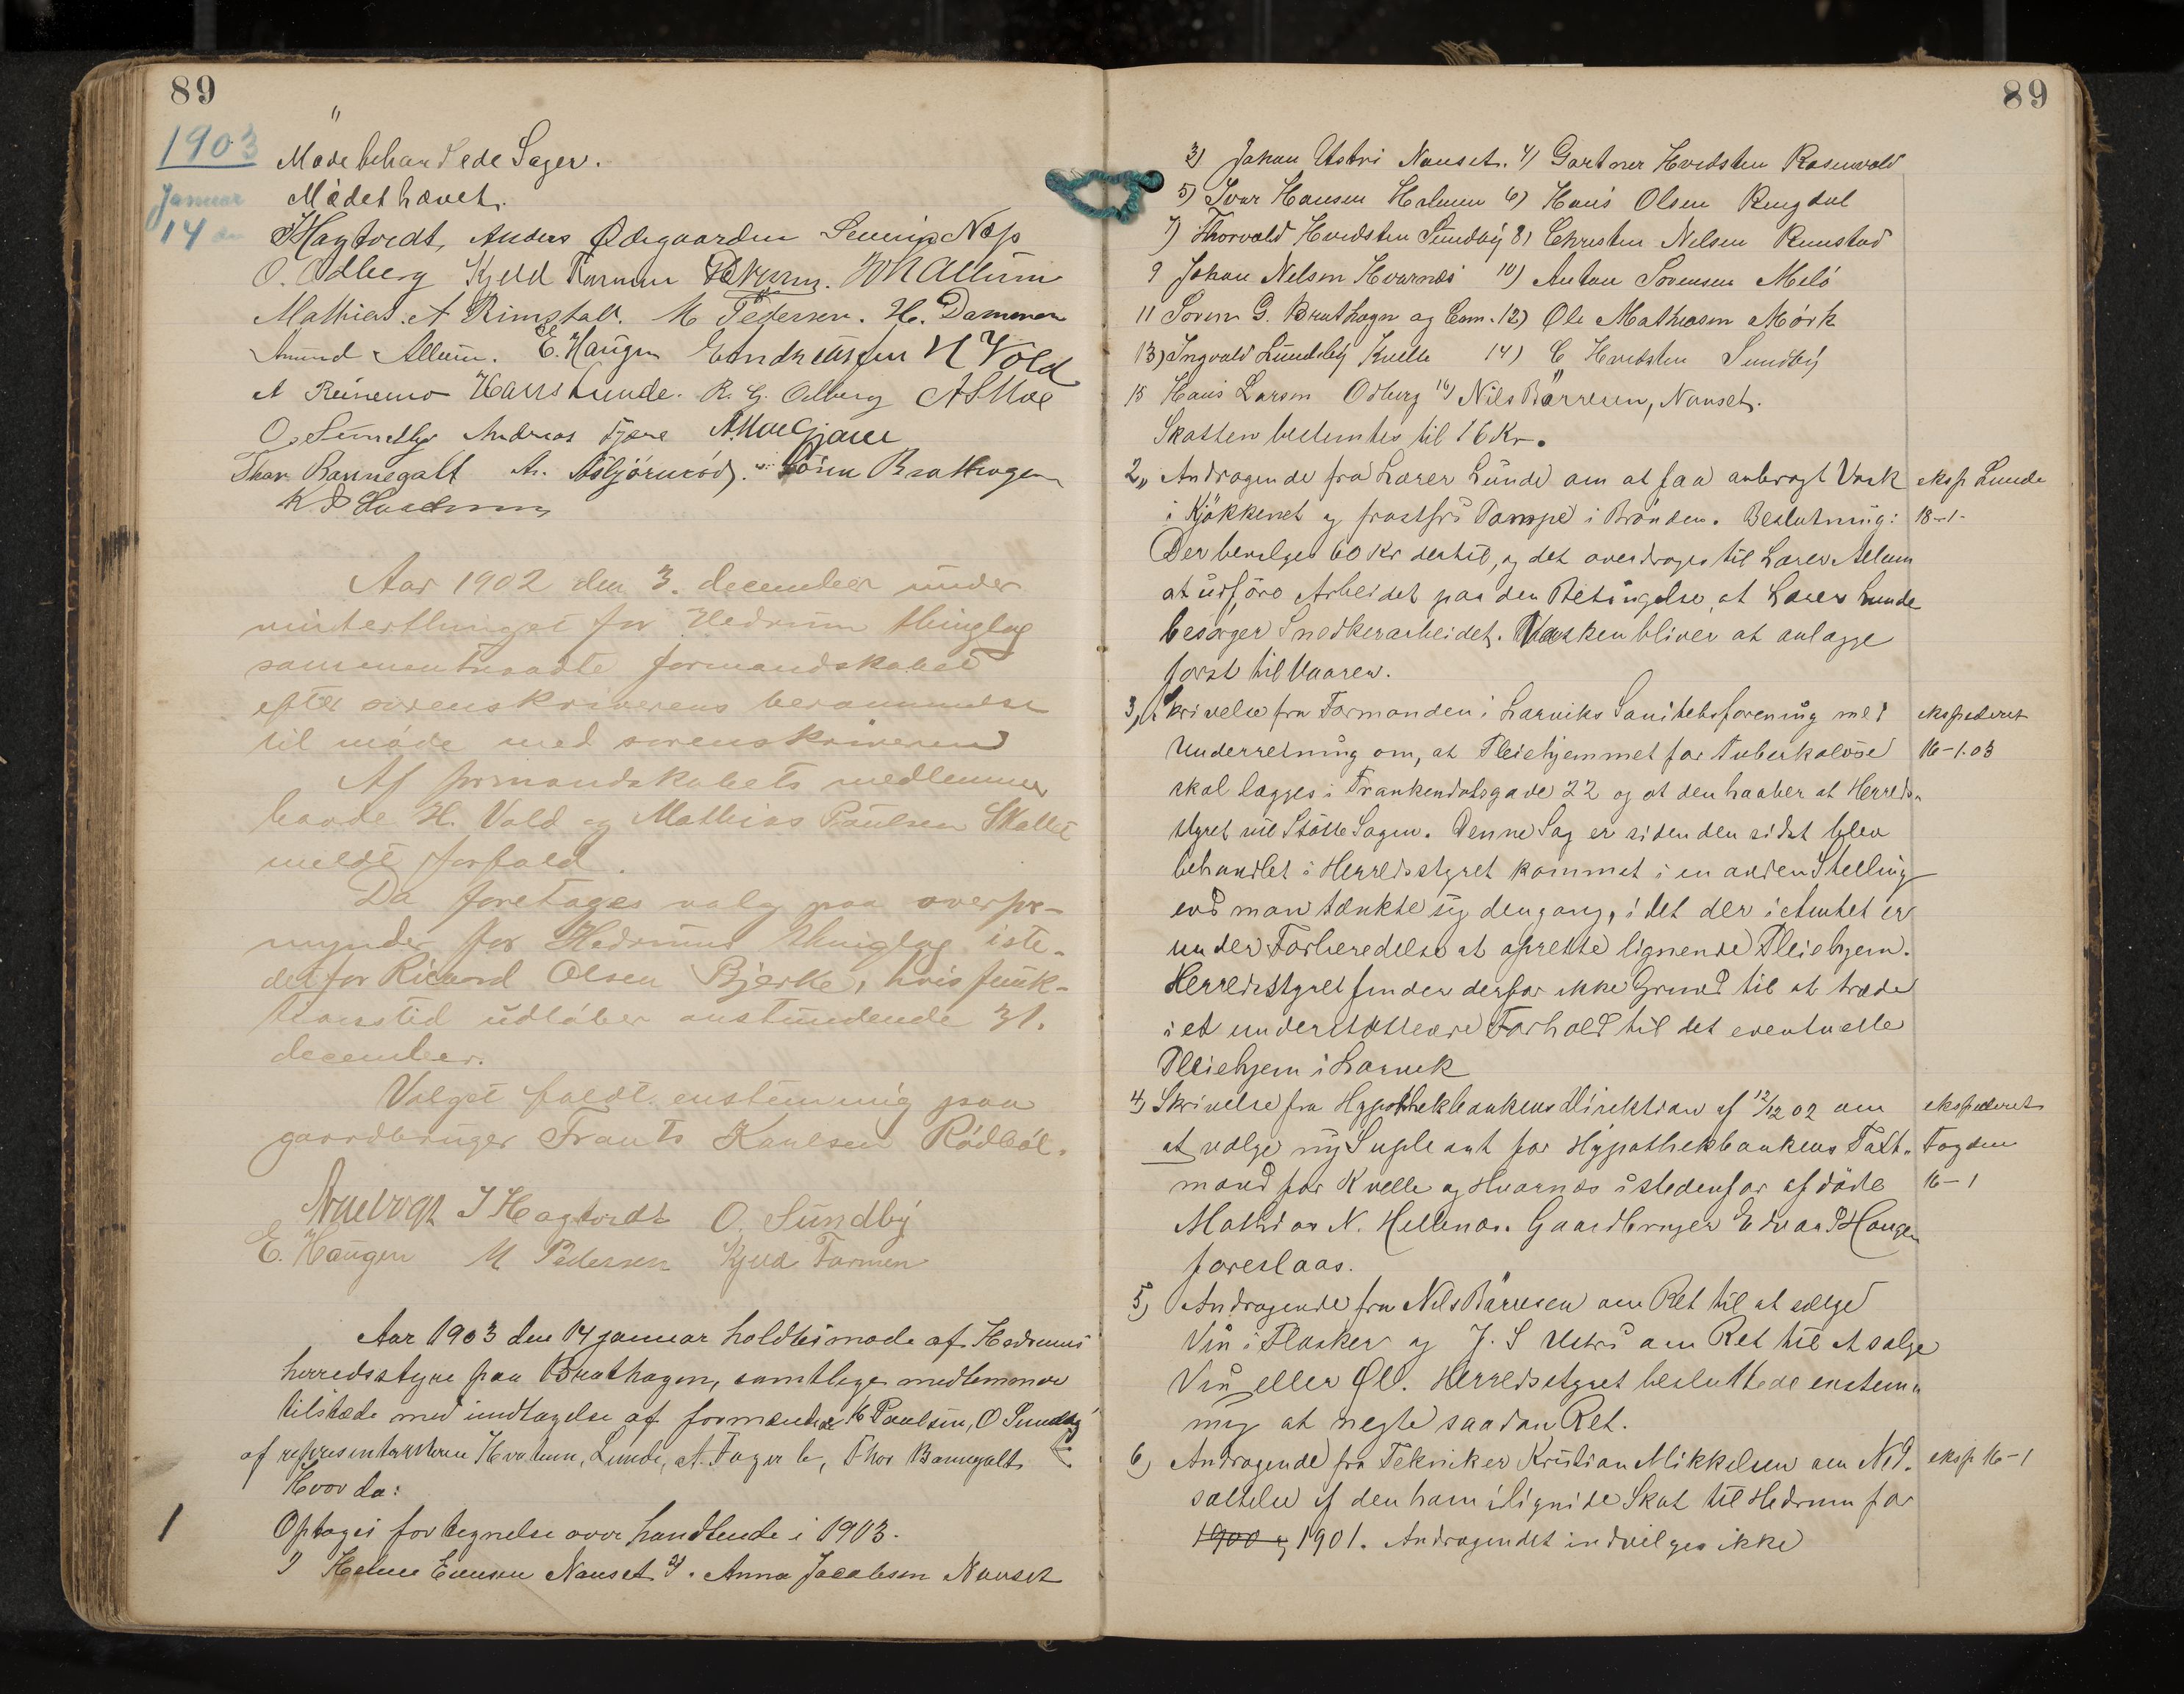 89
1903
Januar
14 de
Møde behandlede Sager.
Mødet hævet.
J Hagtvedt, Anders Ødegaarden Severin Næss
O. Odberg Kjeld Farmen
Mathias A Rimstad. M Pedersen. H. Dammen
Amund Allum. E. Haugen H Vold
A Reinemo Hans Lunde. R. G. Odberg A S Moe
O. Sundby Andreas Fjære
Thor Bannegalt A. Asbjörnröd. Sören Brathagen
Aar 1902 den 3. december under
vinterthinget for Hedrum thinglag
sammentraadte formandskabet
efter sorenskriverens berammelse
til möde med sorenskriveren
Af formandskabets medlemmer
havde H. Vold og Mathias Paulsen Skalle
meldt forfald.
Da foretages valg paa overfor-
mynder for Hedrums thinglag iste-
detfor Ricard Olsen Bjerke, hvis funk-
tionstid udløber anstundende 31.
december.
Valget faldt enstemmig paa
gaardbruger Frants Karlsen Rödböl.
J Hagtvedt O. Sundby
E. Haugen M Pedersen Kjeld Farmen
Aar 1903 den 14 januar holdtes møde af Hedrums
herredsstyre paa Brathagen, samtlige medlemmer
tilstæde med undtagelse af formændene K Paulsen, O Sundby
af representanterne Lunde, A. Fagerli, Thor Bannegalt
Hvor da:
1 Optoges fortegnelse over handlende i 1903.
1) Helene Evensen Nanset 2). Anna Jacobsen Nanset
89
3) Johan Ustvi Nanset. 4) Gartner Hvidsten Rosenvold
5) Ivar Hansen Holmen 6) Hans Olsen Ringdal
7) Thorvald Hvidsten Sundby 8) Christen Nilsen Rimstad
9 Johan Nilsen Hvarnes 10) Anton Sørensen Melö
11 Søren G. Brathagen og Com. 12) Ole Mathiasen Mörk
13) Ingvald Lundeby Kvelle 14) C Hvidsten Sundby
15 Hans Larsen Odberg 16) Nils Børresen, Nanset.
Skatten bestemtes til 16 Kr.
2,, Andragende fra Lærer Lunde om at faa anbragt Vask eksp Lunde
i Kjökkenet og frostfri Pompe i Brönden. Beslutning: 18-1-
Der bevilges 60 Kr dertil, og det overdrages til Lærer Allum
at udföre Arbeidet paa den Betingelse, at Lærer Lunde
besørger Snedkerarbeidet. Vasken bliver at anlægge
först til Vaaren.
3,, Skrivelse fra Formanden i Larviks Sanitetsforening med ekspederet
Underretning om, at Pleiehjemmet for Tuberkulöse 16-1.03
skal lægges i Frankendalsgade 22 og at den haaber at Herreds-
styret vil Stötte Sagen. Denne Sag er siden den sidst blev
behandlet i Herredsstyret kommet i en anden Stelling
end man tænkte sig dengang, i det der i Amtet er
under Forberedelse at oprette lignende Pleiehjem.
Herredsstyret finder derfor ikke Grund til at træde
i et understöttende Forhold til det eventuelle
Pleiehjem i Larvik
4) Skrivelse fra Hypothekbankens Direktion af 12/12 02 om ekspederet
at vælge ny Supleant for Hypothekbankens Takst- Fogden
mand for Kvelle og Hvarnes istedenfor afdöde 16-1
Mathias N. Hellenæs. Gaardbruger Edvard Haugen
foreslaas.
5) Andragende fra Nils Börresen om Ret til at sælge
Vin i Flasker og J. S Ustvi om Ret til at sælge
Vin eller Øl. Herredsstyret besluttede enstem-
mig at negte saadan Ret.
6) Andragende fra Tekniker Kristian Mikkelsen om Ned- eksp 16-1
sættelse af den ham ilignide Skat til Hedrum for
1900 og 1901. Andragendet indvilges ikke